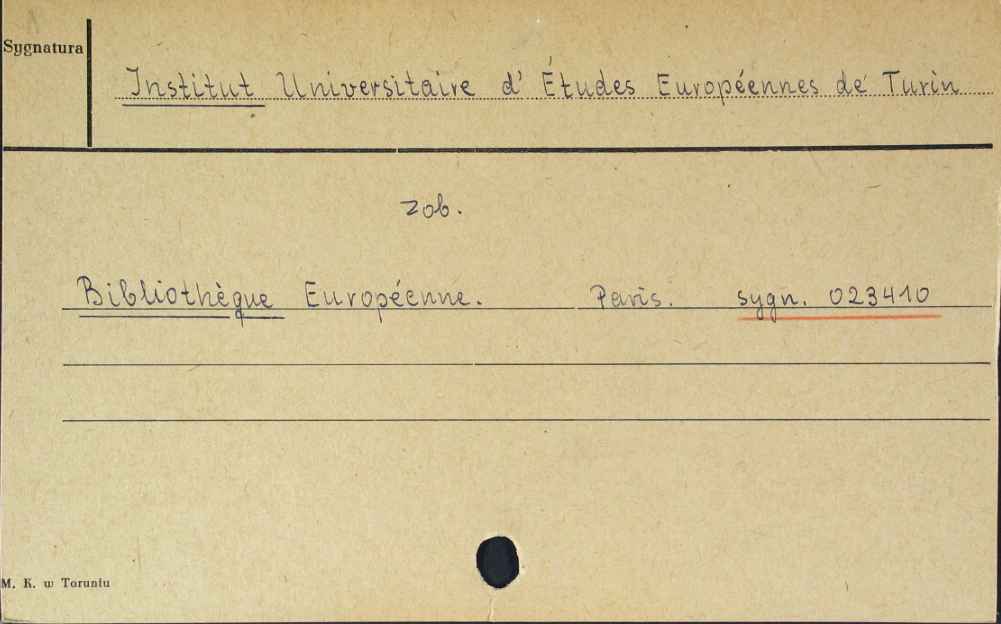 Sygnatura
Institut Universitaire d'Études Européennes de Turin
zob.
Bibliothèque Européenne. Paris. sygn. 023410
M. K. w Toruniu